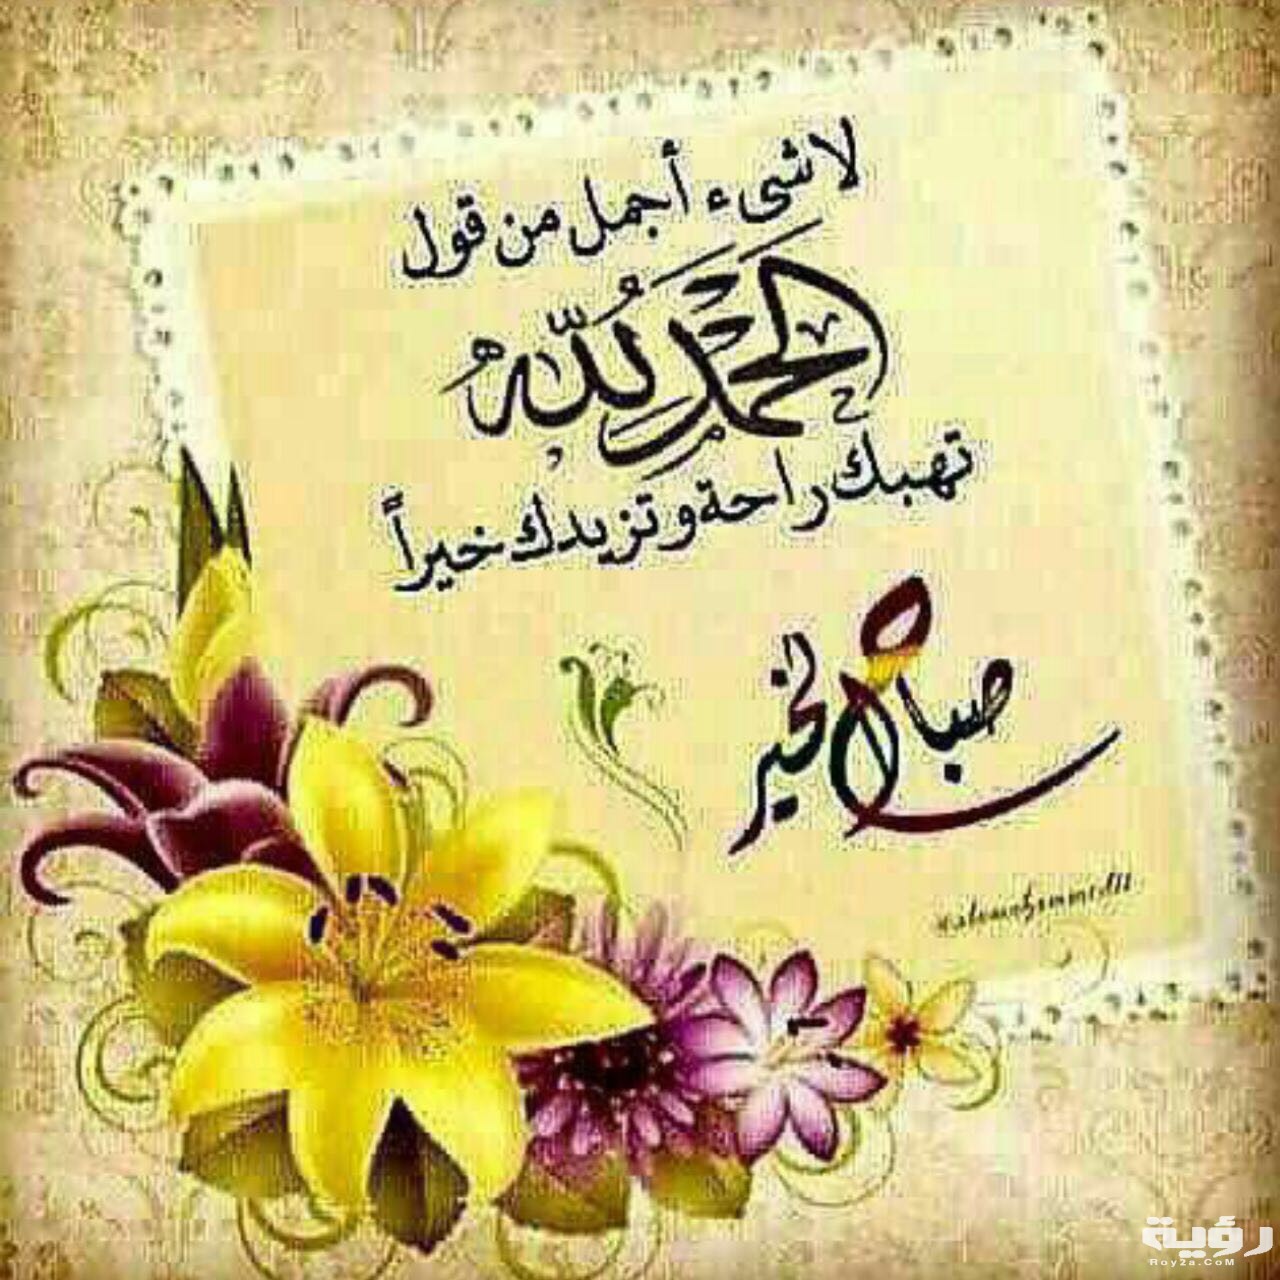 لا شىء أجمل من قول
الحَمدُ لِلّه
تهبك راحة وتزيدك خيراً
صباح الخير
رؤية
Roy2a.CoM